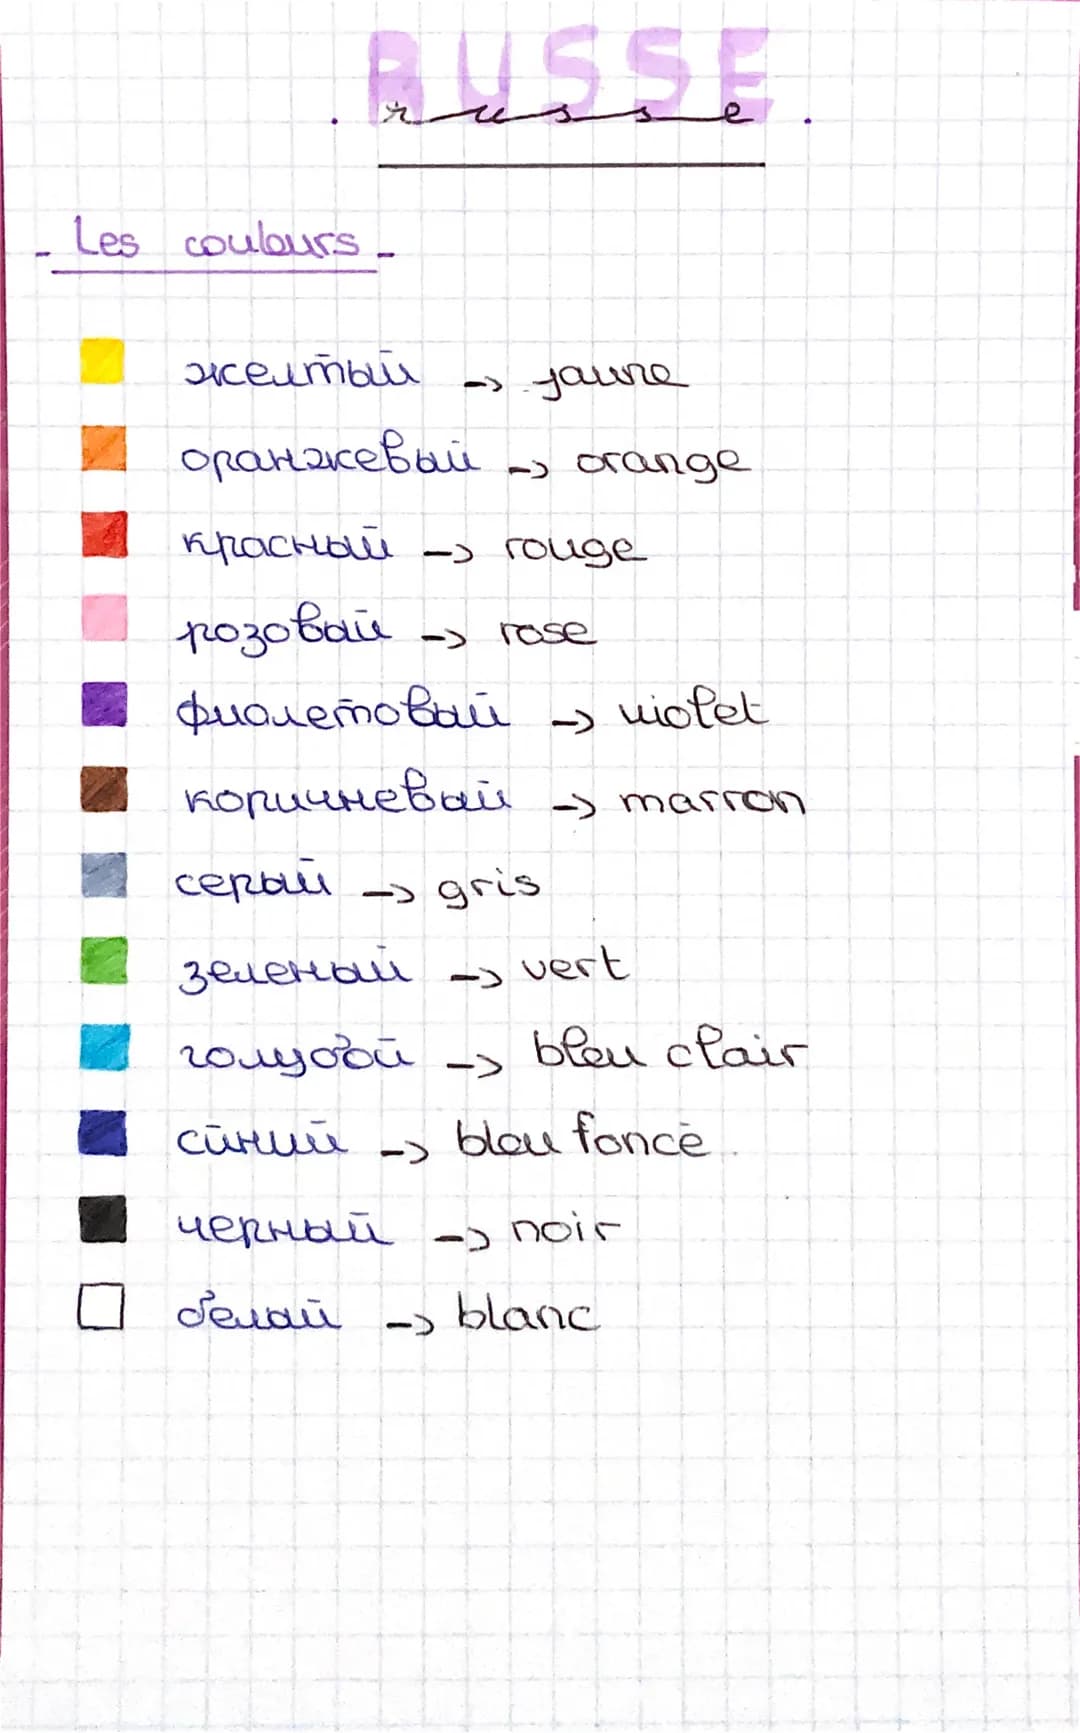 RUSSE
. russe .
- Les couleurs -
желтый -> jaune
оранжевый -> orange
красный -> rouge
розовый -> rose
фиолетовый -> violet
коричневый -> marron
серый -> gris
зеленый -> vert
голубой -> bleu clair
синий -> bleu foncé
черный -> noir
белый -> blanc